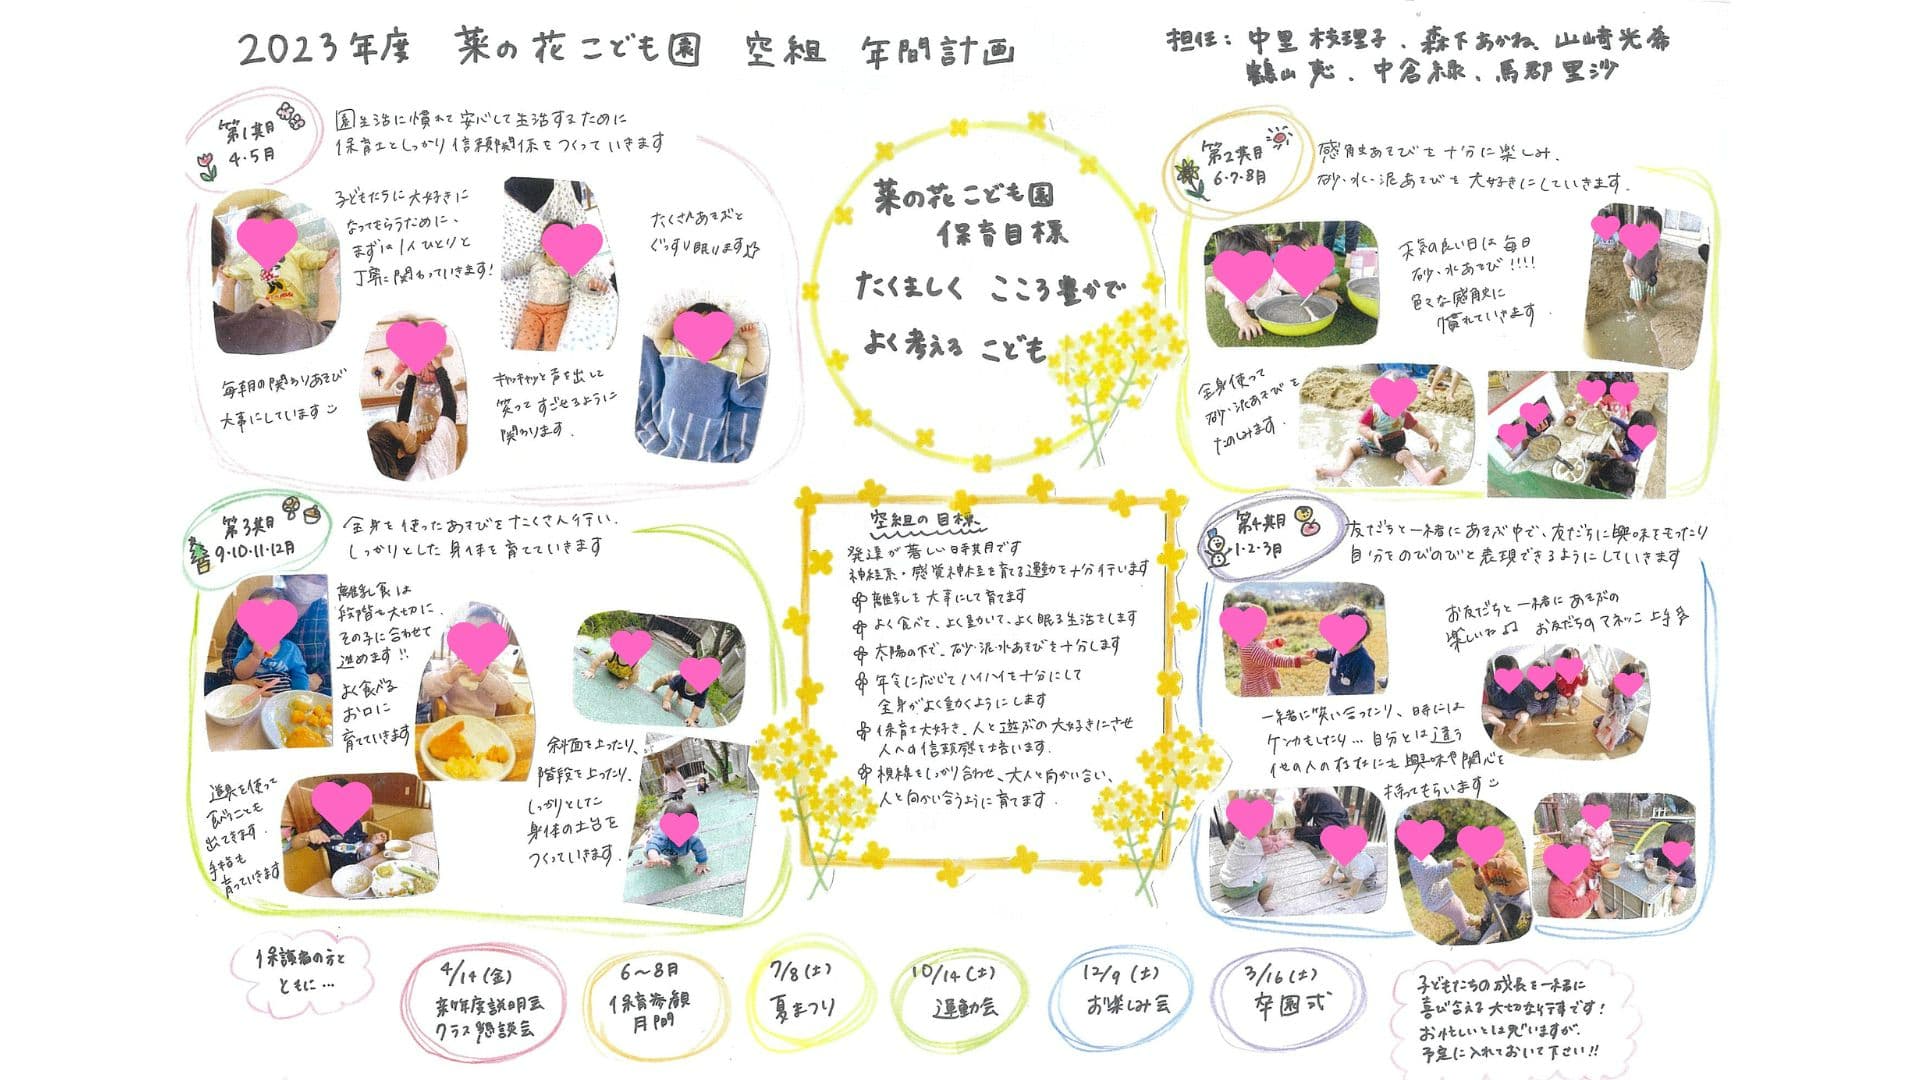 2023年度 菜の花こども園 空組 年間計画
担任：中里 枝理子、森下あかね、山崎光希
鶴山 恵、中倉緑、馬郡里沙
第1期
4・5月
園生活に慣れて安心して生活するために
保育士としっかり信頼関係をつくっていきます
子どもたちに大好きに
なってもらうために、
まずは1人ひとりと
丁寧に関わっていきます!
たくさんあそぶと
ぐっすり眠ります♪
毎朝の関わりあそび
大事にしています
キャッキャッと声を出して
笑ってすごせるように
関わります.
菜の花こども園
保育目標
たくましく こころ豊かで
よく考える こども
第2期
6・7・8月
感触あそびを十分に楽しみ.
砂・水・泥あそびを大好きにしていきます.
天気の良い日は毎日
砂・水あそび!!!!
色々な感触に
慣れていきます.
全身使って
砂・泥あそびを
たのしみます.
第3期
9・10・11・12月
全身を使ったあそびをたくさん行い.
しっかりとした身体を育てていきます
離乳食は
段階を大切に.
その子に合わせて
進めます!!
よく食べる
お口に
育てていきます
道具を使って
食べることも
出てきます.
手指も
育っていきます
斜面を上ったり、
階段を上ったり.
しっかりとした
身体の土台を
つくっていきます.
空組の目標
発達が著しい時期です
神経系・感覚神経を育てる運動を十分行います
離乳を大事にして育てます
よく食べて、よく動いて、よく眠る生活をします
太陽の下で、砂・泥・水あそびを十分します
年令に応じてハイハイを十分にして
全身がよく動くようにします
保育士大好き、人と遊ぶの大好きにさせ
人への信頼感を培います.
視線をしっかり合わせ、大人と向かい合い、
人と向かい合うように育てます.
第4期
1・2・3月
友だちと一緒にあそぶ中で、友だちに興味をもったり
自分をのびのびと表現できるようにしていきます
お友だちと一緒にあそぶの
楽しいね♫ お友だちのマネッこ上手多
一緒に笑い合ったり、時には
ケンカもしたり…自分とは違う
他の人の存在にも興味や関心を
持ってもらいます
保護者の方と
ともに…
4/14(金)
新年度説明会
クラス懇談会
6～8月
保育参観
月間
7/8(土)
夏まつり
10/14(土)
運動会
12/9(土)
お楽しみ会
3/16(土)
卒園式
子どもたちの成長を一緒に
喜び合える大切な行事です!
お忙しいとは思いますが、
予定に入れておいて下さい!!